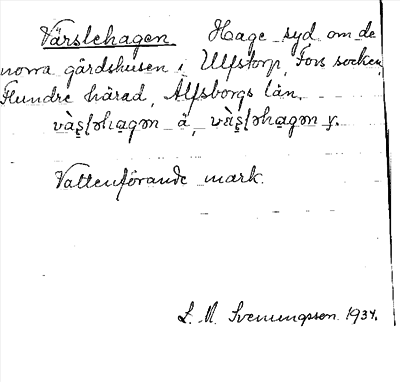 Värslehagen Hage syd om de
norra gårdshusen i Ulfstorp, Fors socken,
Flundre härad, Älfsborgs län.
vàʂḷəhagən ä, vàʂḷəhagən y.
Vattenförande mark.
L. M. Svenungsson 1934.